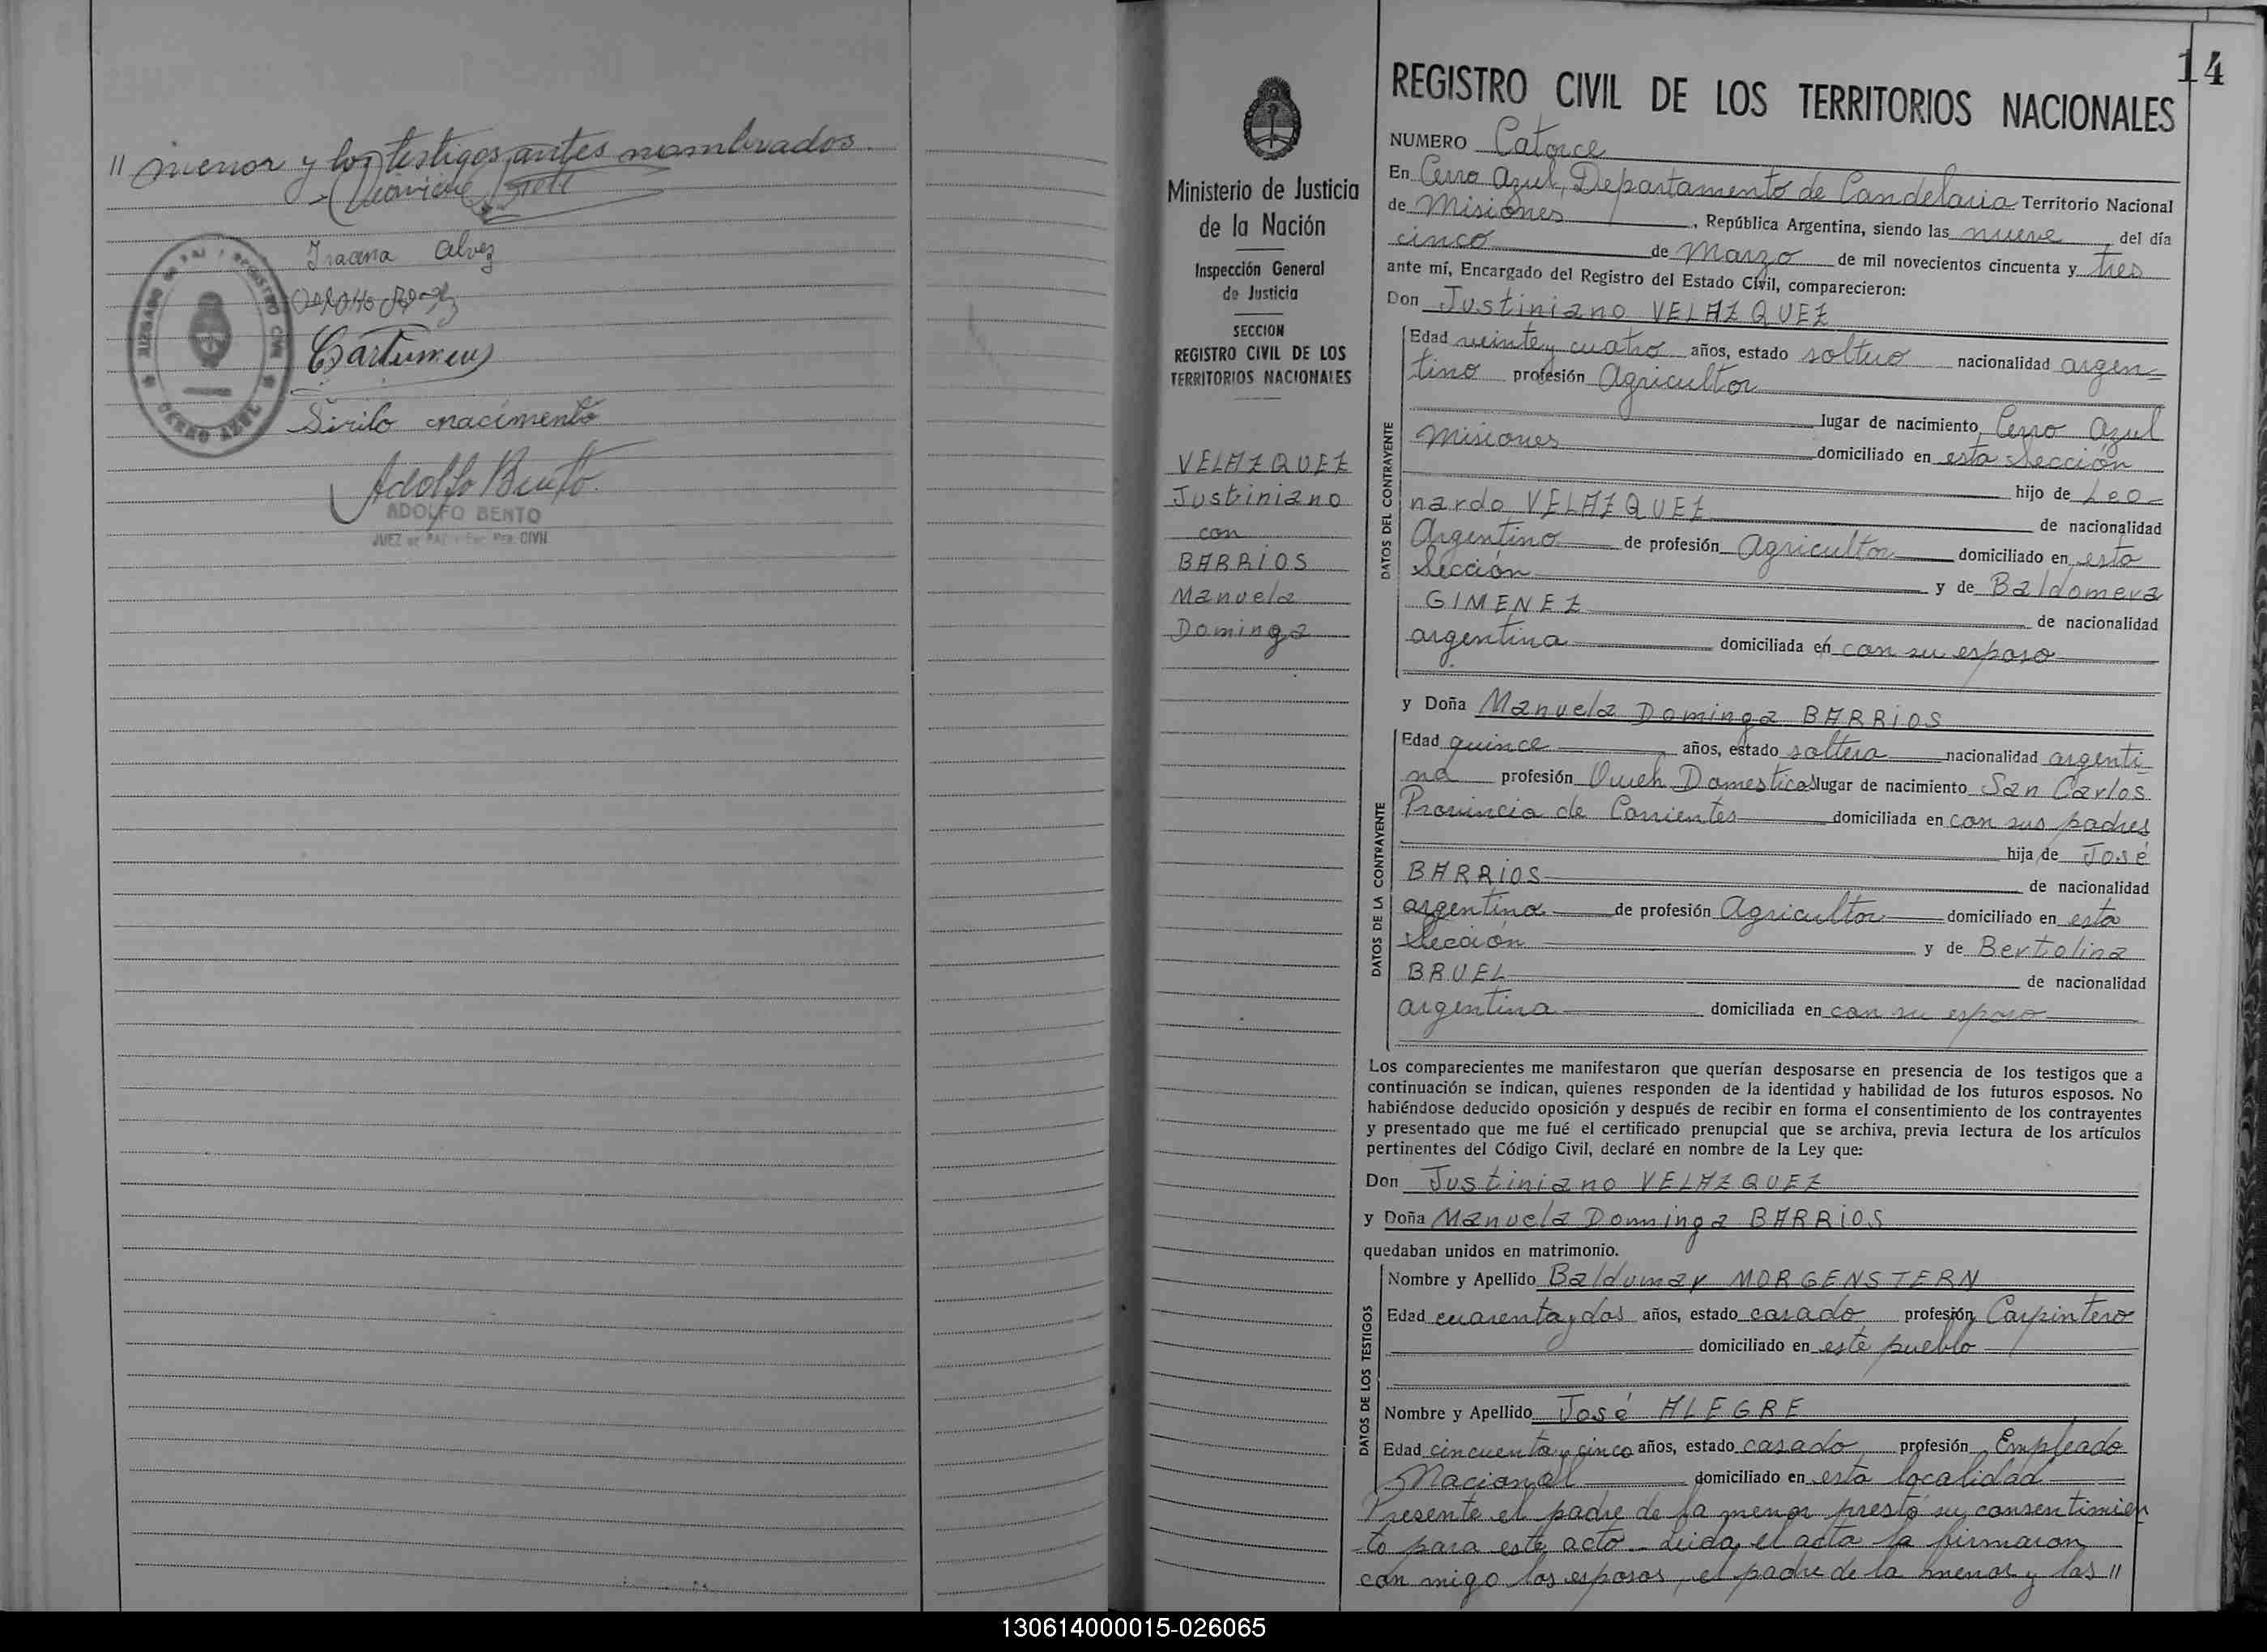 " menor y los testigos antes nombrados.
Iracena Alvez
Sirilo nacimento
Adolfo Bento
ADOLFO BENTO
JUEZ DE PAZ Y ENC. REG. CIVIL
JUZGADO DE PAZ Y REGISTRO CIVIL
CERRO AZUL
14
Ministerio de Justicia
de la Nación
Inspección General
de Justicia
SECCION
REGISTRO CIVIL DE LOS
TERRITORIOS NACIONALES
VELAZQUEZ
Justiniano
con
BARRIOS
Manuela
Dominga
REGISTRO CIVIL DE LOS TERRITORIOS NACIONALES
NUMERO Catorce
En Cerro Azul, Departamento de Candelaria Territorio Nacional
de Misiones, República Argentina, siendo las nueve del día
cinco de Marzo de mil novecientos cincuenta y tres
ante mí, Encargado del Registro del Estado Civil, comparecieron:
Don Justiniano VELAZQUEZ
DATOS DEL CONTRAYENTE
Edad veinte y cuatro años, estado soltero nacionalidad argen-
tino profesión Agricultor
lugar de nacimiento Cerro Azul
Misiones domiciliado en esta Sección
hijo de Leo-
nardo VELAZQUEZ de nacionalidad
Argentino de profesión Agricultor domiciliado en esta
Sección y de Baldomera
GIMENEZ de nacionalidad
argentina domiciliada en con su esposo
y Doña Manuela Dominga BARRIOS
DATOS DE LA CONTRAYENTE
Edad quince años, estado soltera nacionalidad argenti-
na profesión Queh. Domesticos lugar de nacimiento San Carlos
Provincia de Corrientes domiciliada en con sus padres
hija de José
BARRIOS de nacionalidad
argentino de profesión Agricultor domiciliado en esta
Sección y de Bertolina
BRUEL de nacionalidad
argentina domiciliada en con su esposo
Los comparecientes me manifestaron que querían desposarse en presencia de los testigos que a
continuación se indican, quienes responden de la identidad y habilidad de los futuros esposos. No
habiéndose deducido oposición y después de recibir en forma el consentimiento de los contrayentes
y presentado que me fué el certificado prenupcial que se archiva, previa lectura de los artículos
pertinentes del Código Civil, declaré en nombre de la Ley que:
Don Justiniano VELAZQUEZ
y Doña Manuela Dominga BARRIOS
quedaban unidos en matrimonio.
DATOS DE LOS TESTIGOS
Nombre y Apellido Baldumar MORGENSTERN
Edad cuarenta y dos años, estado casado profesión Carpintero
domiciliado en este pueblo
Nombre y Apellido José ALEGRE
Edad cincuenta y cinco años, estado casado profesión Empleado
Nacional domiciliado en esta localidad
Presente el padre de la menor prestó su consentimien
to para este acto. Leida el acta la firmaron
con migo los esposos, el padre de la menor y los "
130614000015-026065